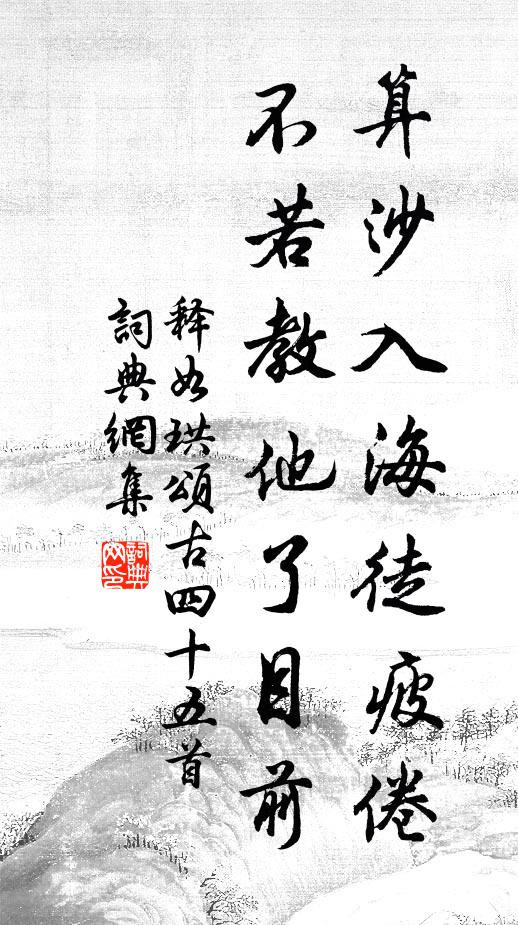 算沙入海徒疲倦
不若教他了目前
释如珙頌古四十五首
詞典網集
詞典
网印